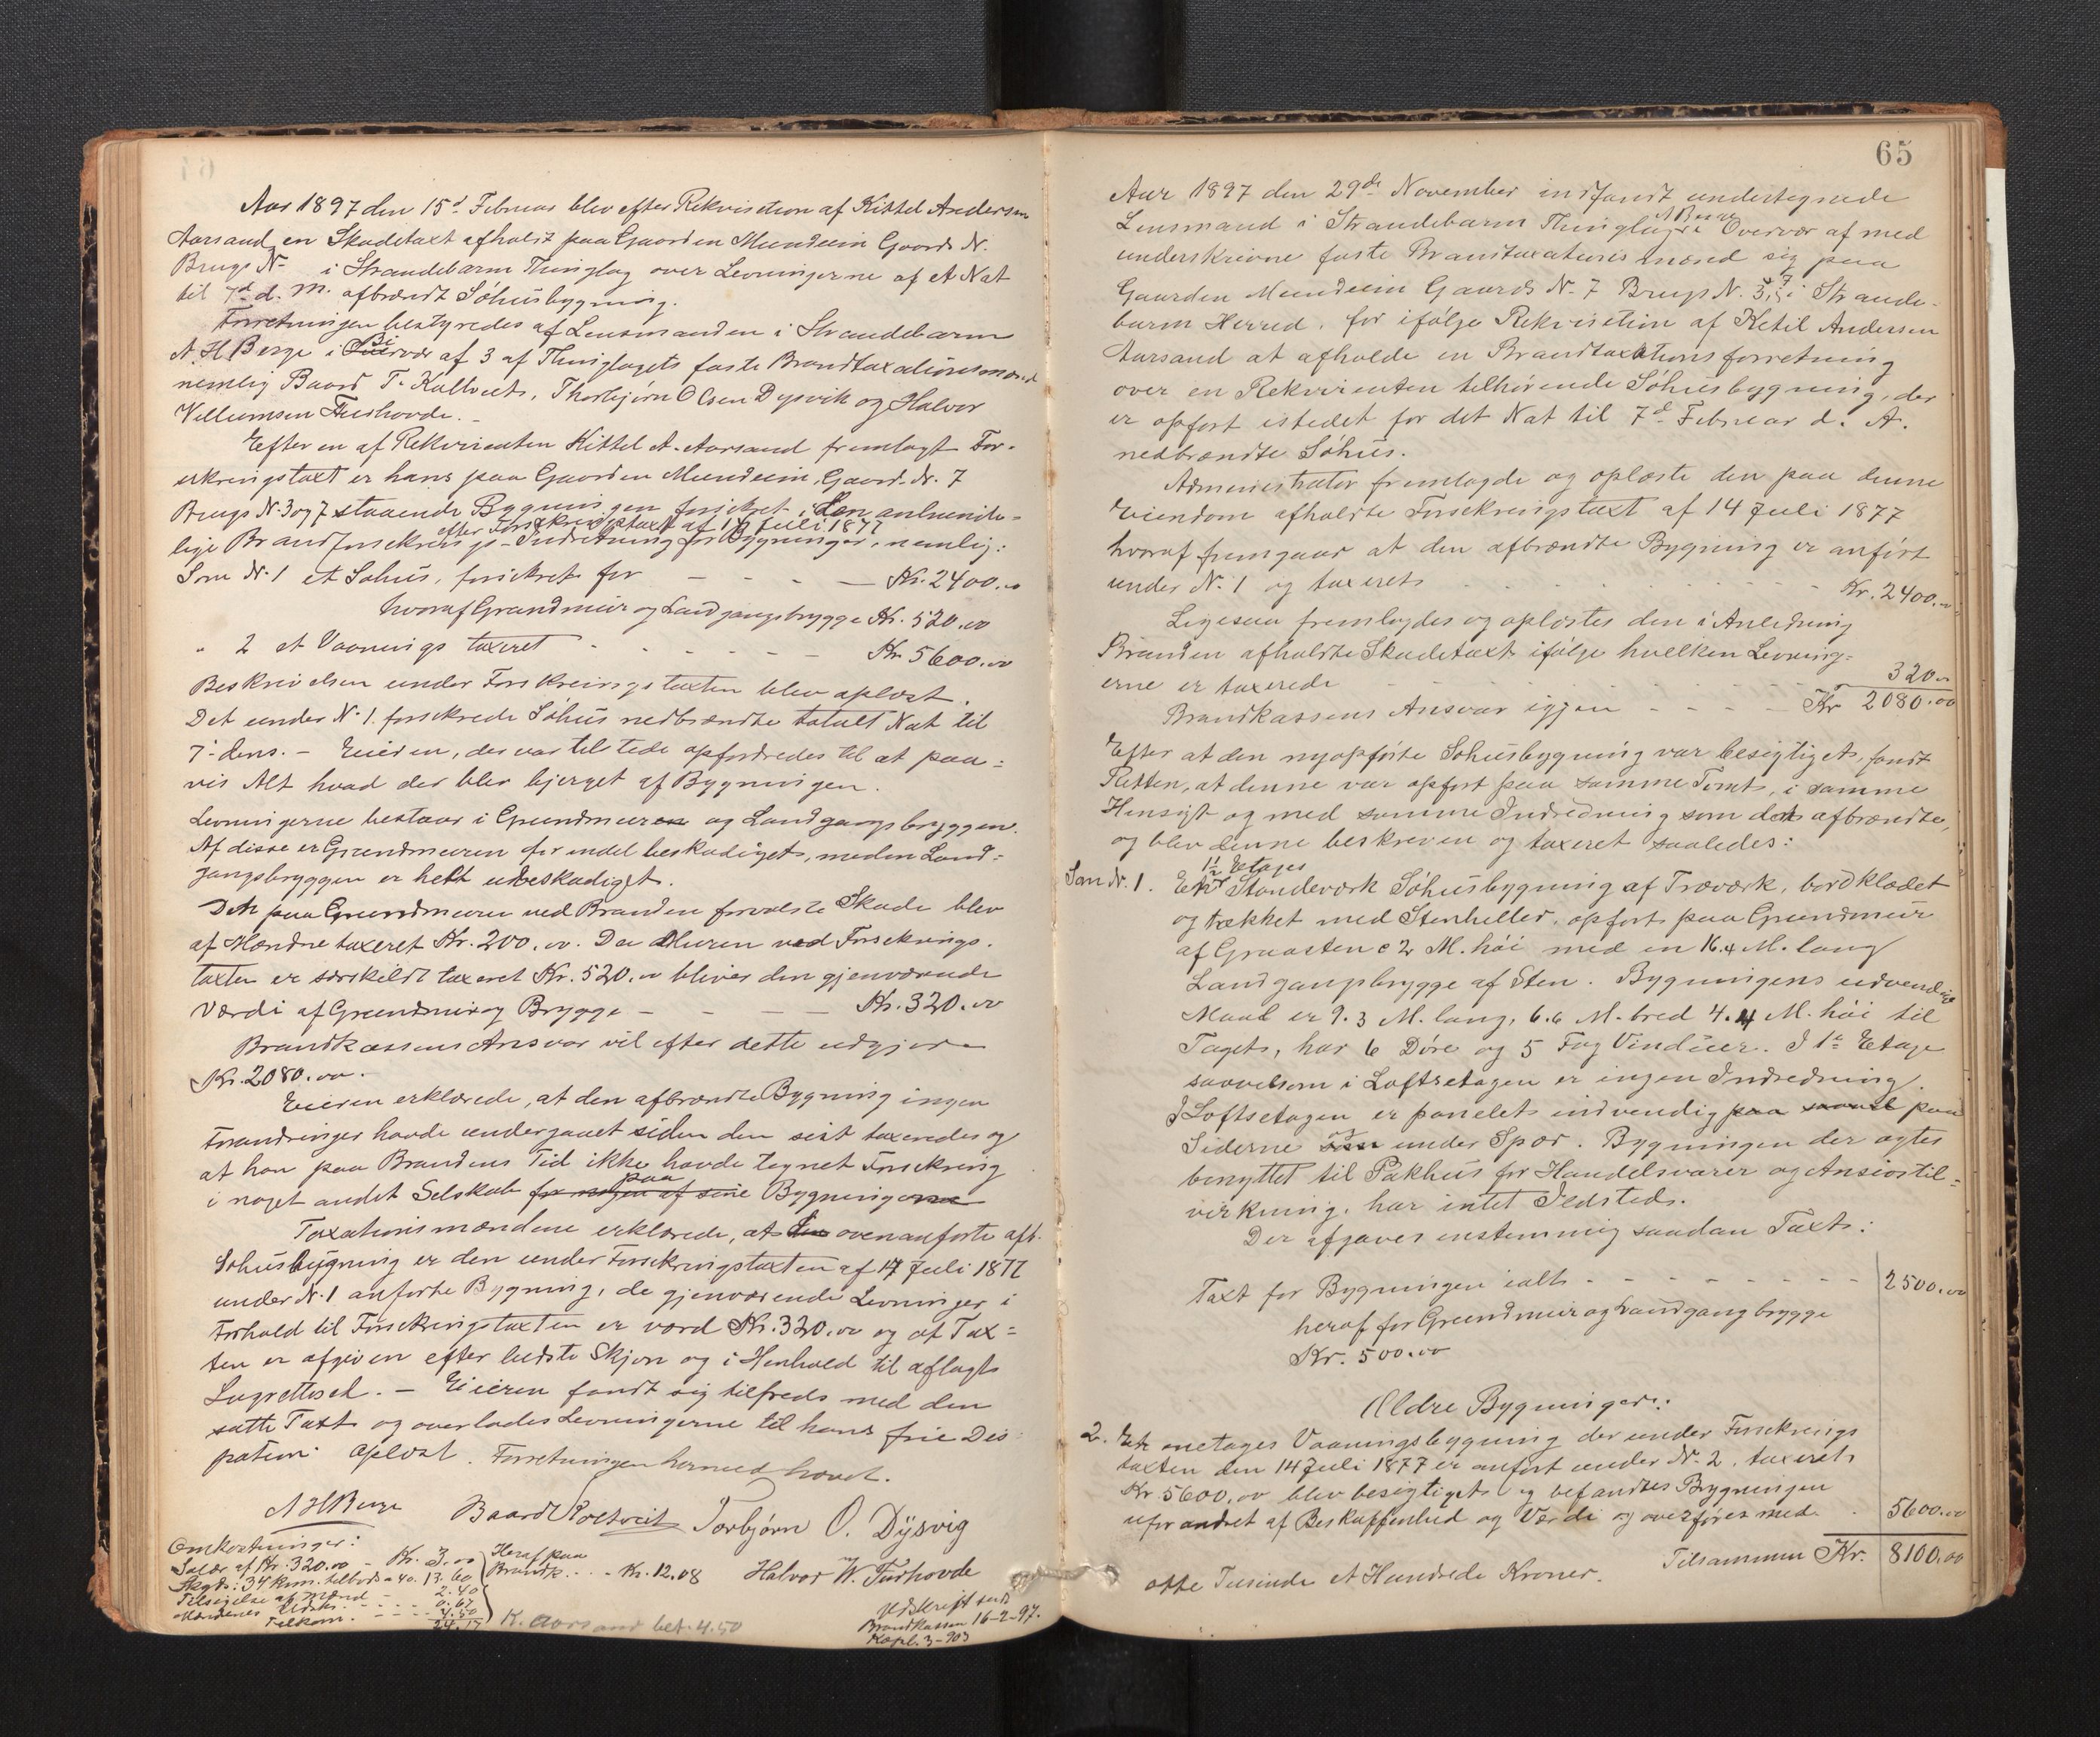 Aar 1897 den 15d Februar blev efter Rekvisition af Kittel Andersen
Aarsand en Skadetaxt afholdt paa Gaarden Mundeim Gaards Nr.
Brugs Nr i Strandebarm Thinglag over Levningerne af et Nat
til 7d d. M. afbrændt Söhusbygning.
Forretningen bestyredes af Lensmanden i Strandebarm
A. H. Berge i Overvær af 3 af Thinglagets faste Brandtaxationsmænd
nemlig Baard T. Kaltveit, Thorbjørn Olsen Dysvik og Halvor
Villiumsen Fuerhovde.
Efter en af Rekvirenten Kittel A. Aarsand fremlagt For-
sikringstaxt er hans paa Gaarden Mundeim, Gaards Nr. 7
Brugs Nr. 3 og 7 staaende Bygningen forsikret i Den almindelige
efter Forsikringstaxt af 14 Juli 1877
lige Brandforsikrings-Indretning for Bygninger, nemlig:
Som Nr. 1 et Söhus, forsikret for - - - - Kr. 2400.00
hvoraf Grundmur og Landgangsbrygge Kr. 520.00
" 2 et Vaanings taxeret - - - - - Kr. 5600.00
Beskrivelsen under Forsikringstaxten blev oplæst.
Det under Nr. 1. forsikrede Söhus nedbrændte totalt Nat til
7de dens. - Eieren, der var tilstede opfordredes til at paa=
vis Alt hvad der blev bjerget af Bygningen.
Levningerne bestaar i Grundmuren og Landgangsbryggen.
Af disse er Grundmuren for endel beskadiget, meden Land=
gangsbryggen er helt ubeskadiget.
Den paa Grundmuren ved Branden forvoldte Skade blev
af Mændne taxeret Kr. 200.00. Da Muren ved Forsikrings-
taxten er særskildt taxeret Kr. 520.00 bliver den gjenværende
Værdi af Grundmur og Brygge - - - - Kr. 320.00
Brandkassens Ansvar vil efter dette udgjøre
Kr. 2080.00.
Eieren erklærede, at den afbrændte Bygning ingen
Forandringer havde undergaaet siden den sidst taxeredes og
at han paa Brandens Tid ikke havde tegnet Forsikring
paa
i noget andet Selskab for nogen af sine Bygningerne
Taxationsmændene erklærede, at den ovenanførte afb.
Söhusbygning er den under Forsikringstaxten af 14 Juli 1877
under Nr. 1 anførte Bygning, de gjenværende Levninger i
Forhold til Forsikringstaxten er værd Kr. 320.00 og at Tax=
ten er afgiven efter bedste Skjøn og i Henhold til aflagt
Lagrettesed. - Eieren fandt sig tilfreds med den
satte Taxt og overlodes Levningerne til hans frie Dis
position. Oplæst. Forretningen hermed hævet.
A H Berge Baard Kaltveit Torbjørn O. Dÿsvig
Halvor W. Furhovde
Omkostninger:
Salær af Kr. 320.00 - Kr. 3.00 Heraf paa
Skyds: 34 km. tilbords a 40. 13.60 Brandk. . . - Kr. 12.08
Tilsigelse af Mænd - - 2.40
Mændenes Udsk. - - - 0.67
4.50
Tilsam. - - - - 24.17
K. Aarsand bet. 4.50
Udskrift sendt
Brandkassen 16-2-97.
Kopb. 3-903
65
Aar 1897 den 29de November indfandt undertegnede
A. Berge
Lensmand i Strandebarm Thinglag i Overvær af med
underskrivne faste Brandtaxationsmænd sig paa
Gaarden Mundeim Gaards Nr. 7 Brugs Nr. 3, 7 i Strande-
barm Herred, for ifølge Rekvisition af Ketil Andersen
Aarsand at afholde en Brandtaxationsforretning
over en Rekvirenten tilhörende Söhusbygning, der
er opfört istedet for det Nat til 7d Februar d. A.
nedbrændte Söhus.
Administrator fremlagde og oplæste den paa denne
Eiendom afholdte Forsikringstaxt af 14 Juli 1877
hvoraf fremgaar at den afbrændte Bygning er anfört
under Nr. 1 og taxeret - - - - - Kr. 2400.00
Ligesaa fremlagdes og oplæstes den i Anledning
Branden afholdte Skadetaxt ifölge hvilken Levning=
erne er taxerede - - - - - - 320.00
Brandkassens Ansvar igjen - - - - Kr 2080.00
Efter at den nyopförte Söhusbygning var besigtiget, fandt
Retten, at denne var opfört paa samme Tomt, i samme
Hensigt og med samme Indredning som det afbrændte,
og blev denne beskreven og taxeret saaledes:
1½ Etages
Som Nr. 1. Et Standeværk Söhusbygning af Træværk, bordklædet
og tækket med Stenheller, opfört paa Grundmur
af Graasten c 2 M. höi med en 16.4 M. lang
Landgangsbrygge af Sten. Bygningens udvendige
Maal er 9.3 M. lang, 6.6 M. bred 4.4 M. höi til
Taget, har 6 Döre og 5 Fag Vinduer. I 1ste Etage
saavelsom i Loftsetagen er ingen Indredning.
I Loftsetagen er panelet indvendig paa saavel paa
Siderne som under Spær. Bygningen der agtes
benyttet til Pakhus for Handelsvarer og Ansiostil=
virkning, har intet Ildsted.
Der afgaves enstemmig saadan Taxt:
Taxt for Bygningen ialt - - - - - - - - 2500.00
heraf for Grundmur og Landgangbrygge
Kr. 500.00
Ældre Bygninger:
2. Et onetages Vaaningsbygning der under Forsikrings
taxten den 14 Juli 1877 er anfört under Nr. 2, taxeret
Kr. 5600.00 blev besigtiget og befandtes Bygningen
uforandret af Beskaffenhed og Værdi og overföres med . 5600.00
Tilsammen Kr. 8100.00
otte Tusinde et Hundrede Kroner.